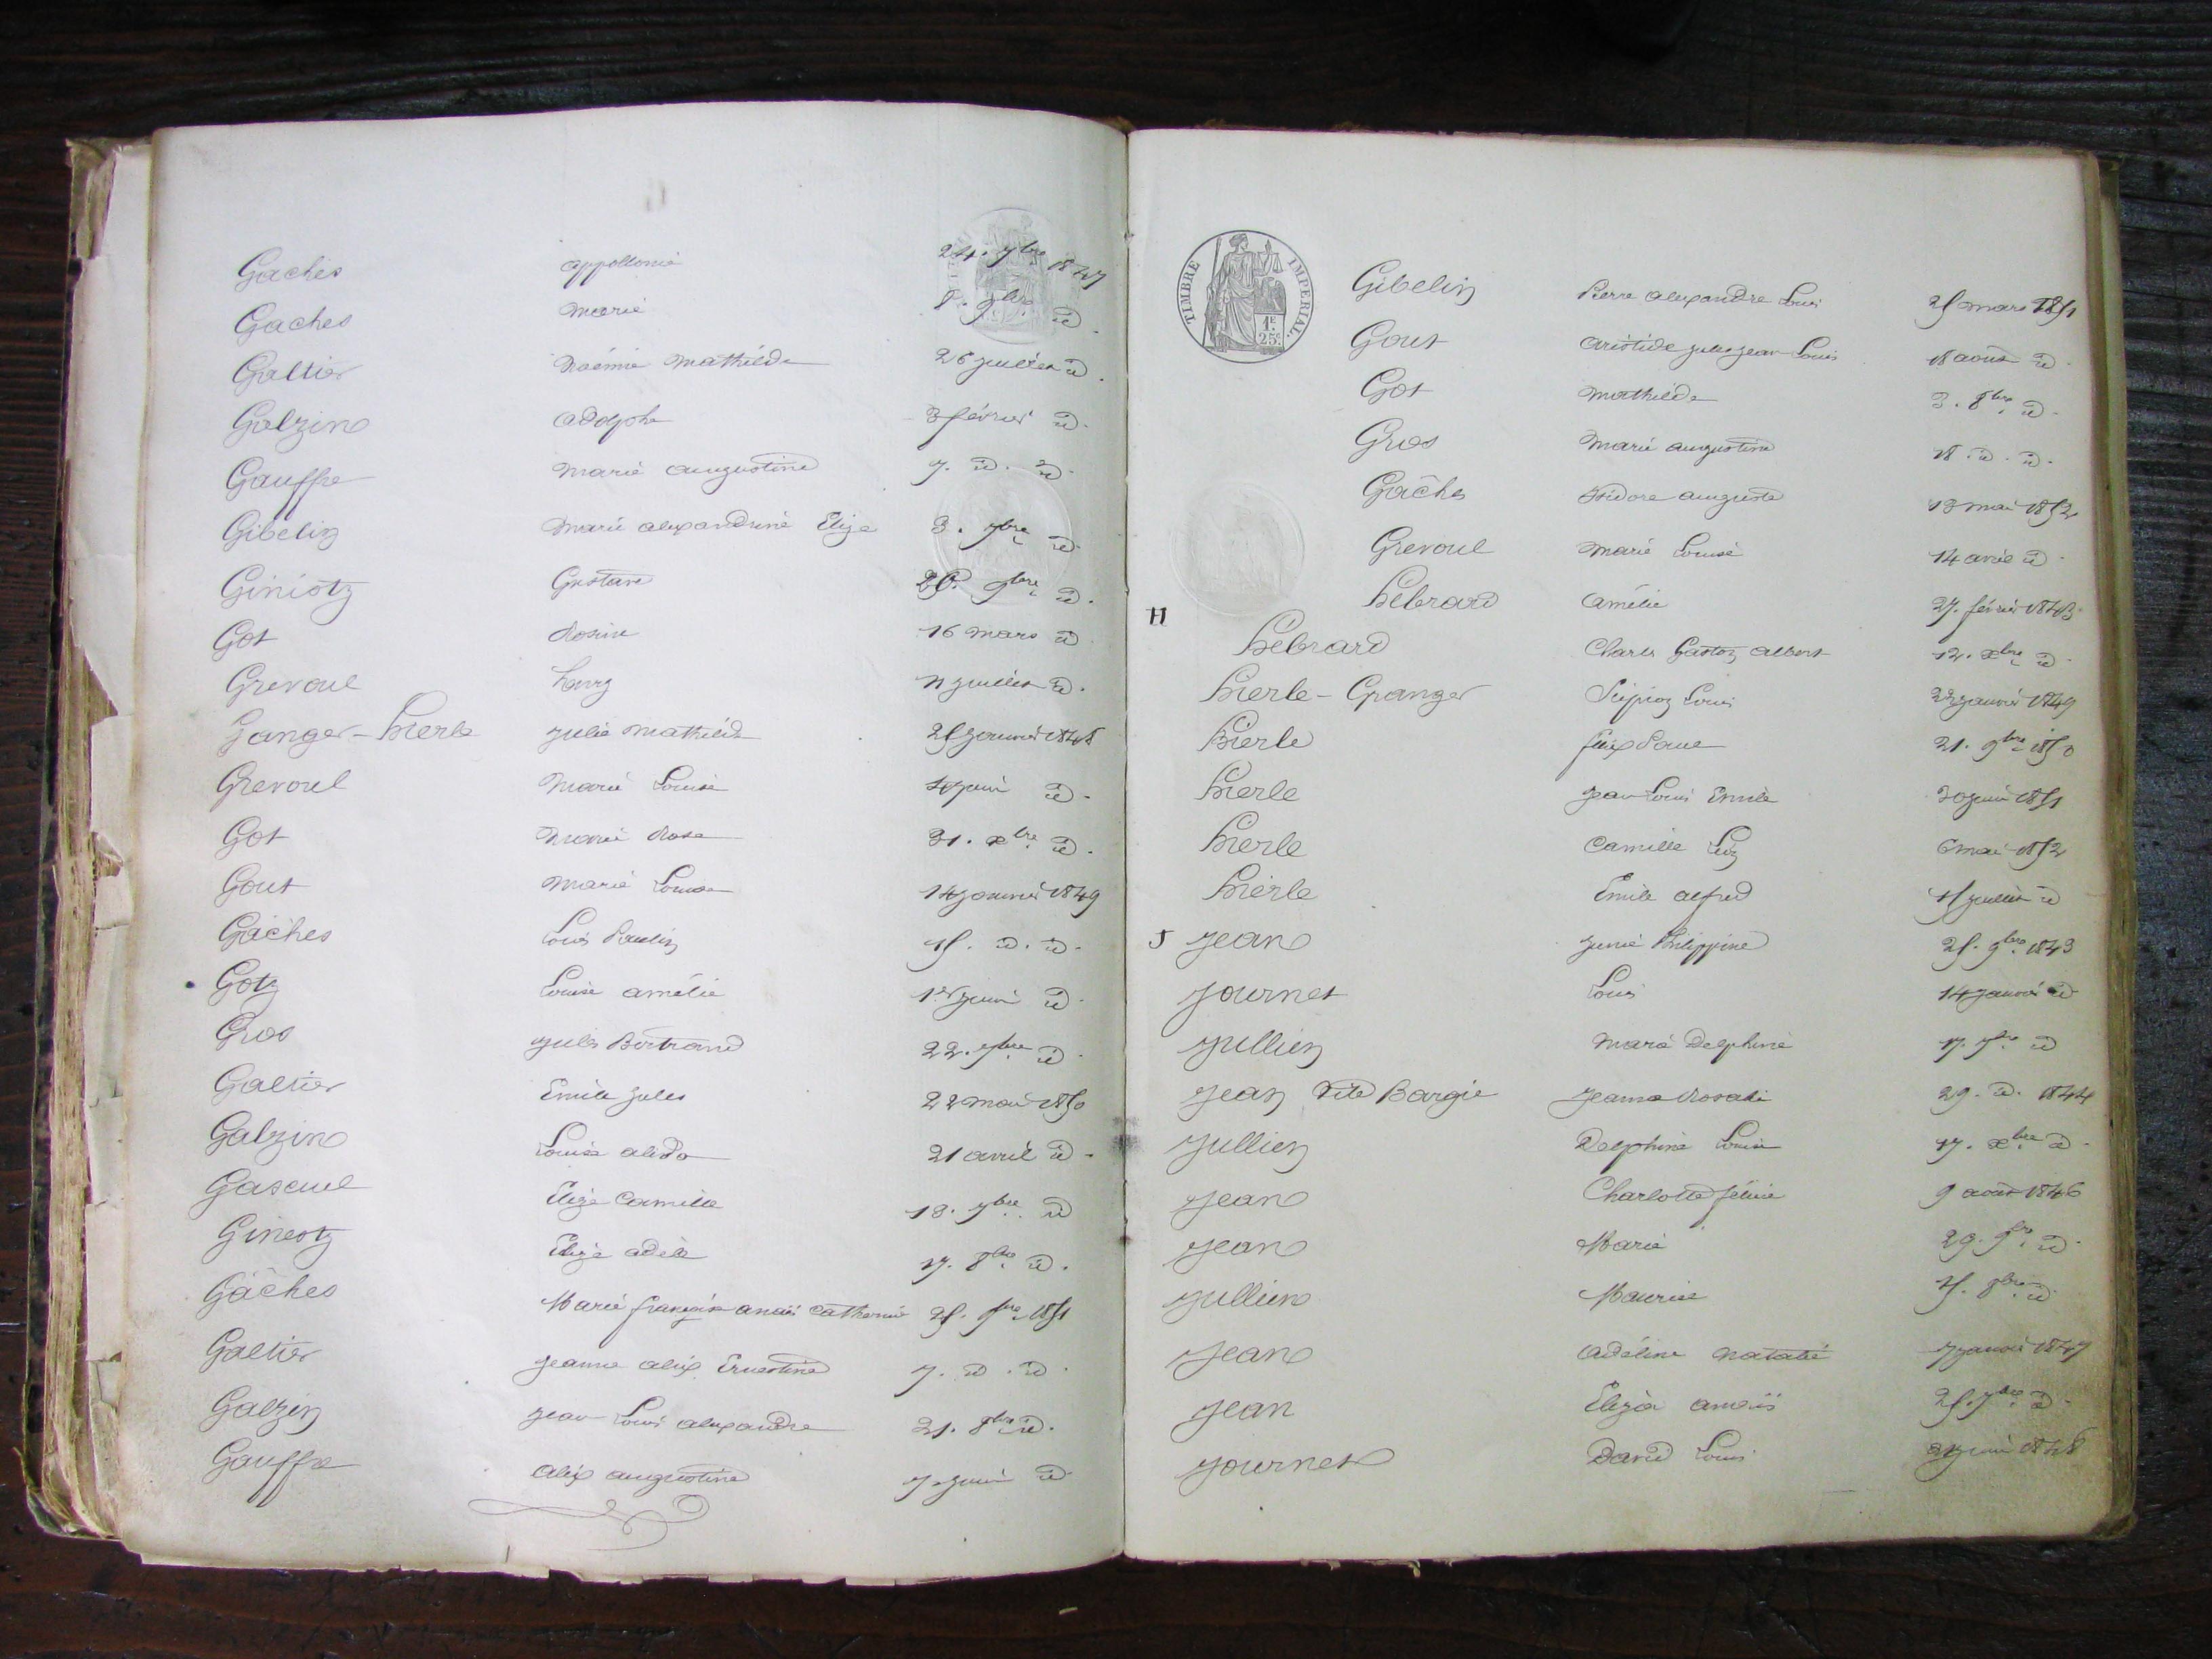 Gaches appollonie 24. 7bre 1847
Gaches marie 8. 9bre id.
Galtier Noémie mathilde 26 juillet id.
Galzin adolphe 3 février id.
Gauffre marie augustine 7. id. id.
Gibelin marie alexandrine Elize 3. 7bre id.
Giniotz Gustave 9bre id.
Got Rosine 16 mars id
Grevoul 11 juillet id.
Granger-hierle julie mathilde 25 janvier 1848
Grevoul marie Louise 4 juin id.
Got marie Rose 31. xbre id.
Gout marie Louise 14 janvier 1849
Gâches Louis Paulin 15. id. id.
Gotz Louise amélie 1er juin id.
Gros jules Bertrand 22. 7bre id.
Galtier Emile jules 22 mai 1850
Galzin Louise alida 21 avril id.
Gascuel Elize Camille 18. 7bre id
Ginestz Elize adèle 17. 8bre id.
Gâches Marie françoise anaïs Catherine 25. 1851
Galtier jeanne alix Ernestine 7. id. id.
Galzin jean Louis alexandre 21. 8bre id.
Gauffre alix augustine 7 juin id.
TIMBRE IMPERIAL.
1F. 25c.
Gibelin Pierre alexandre Louis 25 mars 1851
Gout aristide jules jean Louis 18 aout id.
Got mathilde 3. 8bre id.
Gros marie augustine 18. id. id.
Gâches Isidore auguste 13 mai 1852
Grevoul marie Louise 14 avril id.
H
hebrard amélie 27. février 1843
hebrard Charles Gaston albert 12. xbre id.
hierle-Granger Scipion Louis 22 janvier 1849
hierle félix Paul 21. 9bre 1850
hierle jean Louis Emile 30 juin 1851
hierle Camille 6 mai 1852
hierle Emile alfred 15 juillet id
J jean junie Philippine 25. 9bre 1843
journet Louis 14 janvier id
jullien marie Delphine 17. 7bre id
jean dite Bargie jeanne Rosalie 29. id. 1844
jullien Delphine Louise 17. xbre id.
jean Charlotte félicie 9 août 1846
jean Marie 29. 9bre id.
jullien Maurice 15. 8bre id.
jean adéline natalie 7 janvier 1847
jean Eliza anaïs 25. 7bre id.
journet David Louis juin 1848